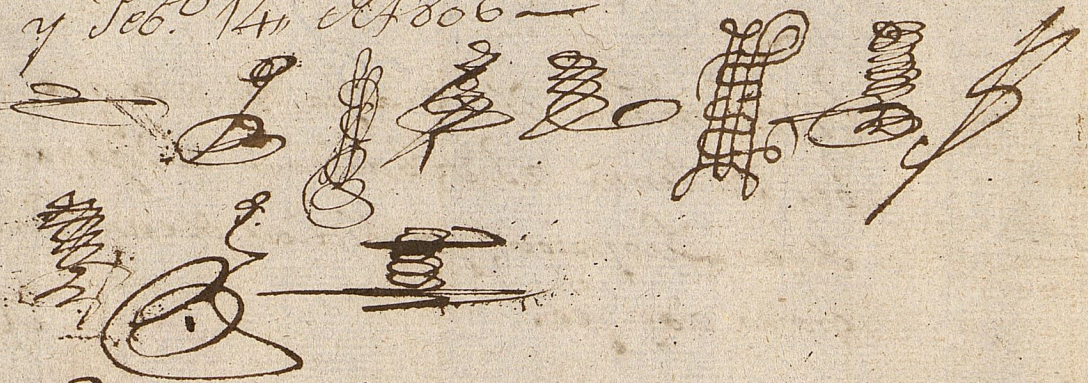 y Feb.º 14,, de 1806